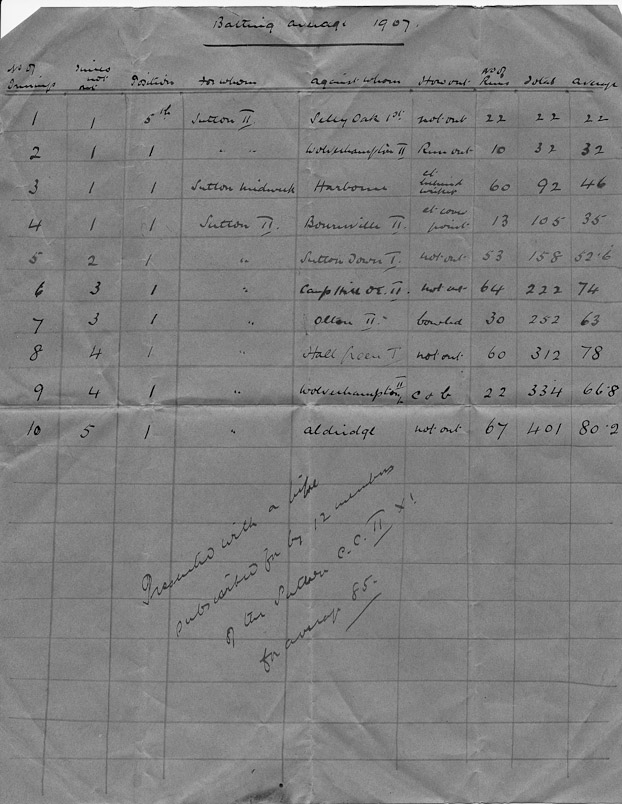 Batting average 1907.
No of Innings Times not out Position For whom against whom How out No of Runs Total average
1 1 5th Sutton II Selly Oak 1st not out 22 22 22
2 1 1 " " Wolverhampton II Run out 10 32 32
3 1 1 Sutton Midweek Harborne ct 60 92 46
4 1 1 Sutton II. Bournville II. ct cover point 13 105 35
5 2 1 " Sutton Down I. not out 53 158 52.6
6 3 1 " Camp Hill O.E. II. not out 64 222 74
7 3 1 " Olton II. bowled 30 252 63
8 4 1 " Hall Green I not out 60 312 78
9 4 1 " Wolverhampton II c & b 22 334 66.8
10 5 1 " Aldridge not out 67 401 80.2
Presented with a
subscribed for by 12 members
of the Sutton C.C. II XI
for average 85.